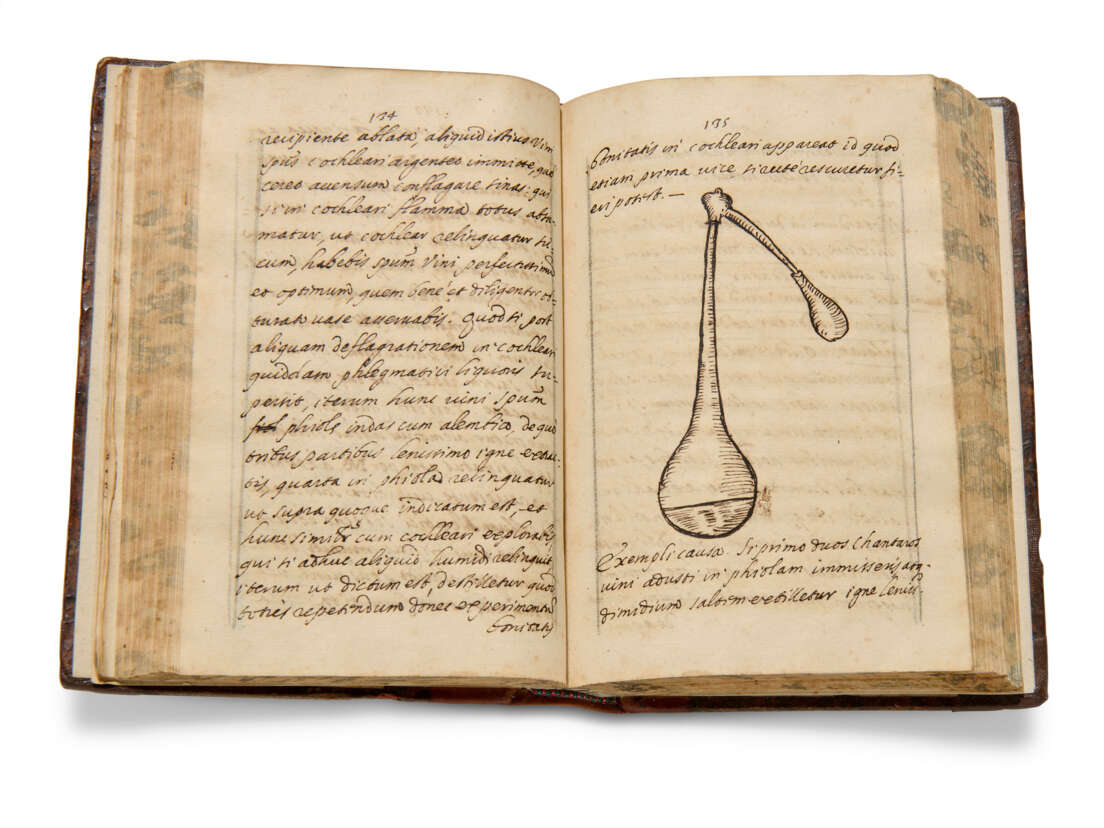 134
recipiente ablata, aliquid istius Vini
spūs cochleari argenteo immitte, que
cereo accensum conflagare sinas: qui
si in cochleari flamma totus absu-
matur, ut cochlear relinquatur sic
cum, habebis spūm Vini perfectissimū
et optimum, quem bene et diligenter ob-
turato vase asservabis. Quod si post
aliquam deflagrationem in cochleari
quiddam phlegmatici liquoris su-
persit, iterum hunc vini spūm
phiolæ indas cum alembico, de quo
tribus partibus lenissimo igne extrac-
tis, quarta in phiola relinquatur
ut supra quoque indicatum est, et
hunc similr cum cochleari explorabis,
qui si adhuc aliquid humidi relinquit
iterum ut dictum est, destilletur quod
toties repetendum donec experimentū
bonitatis
135
bonitatis in cochleari appareat id quod
etiam prima vice si caute rescuretur fi-
eri potest. —
Exempli causa. Si primo duos Chantaros
vini adusti in phiolam immissens, atq.
dimidium saltem extilletur igne leniss.